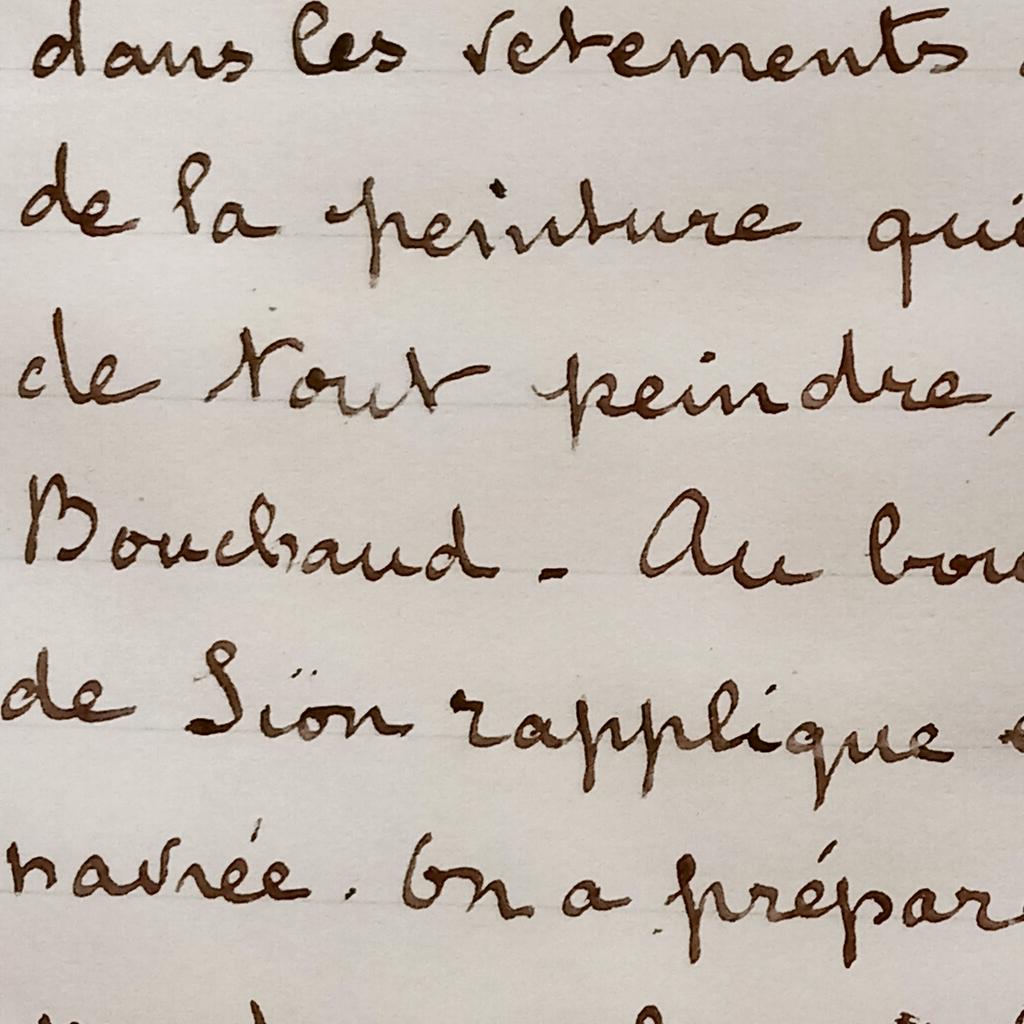 dans les vetements
de la peinture qui
de tout peindre,
Bouchaud - Au bou
de Sïon rapplique
navrée. On a prépar